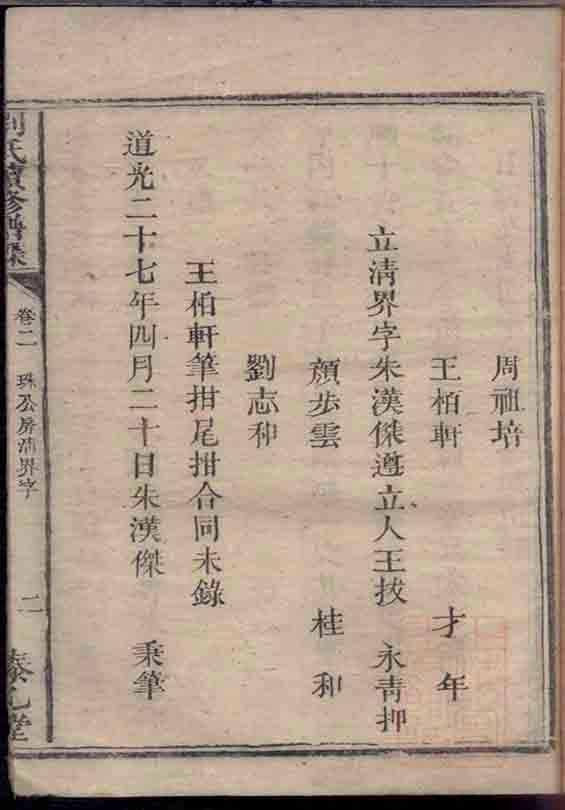 周祖培
王柏軒　才年
立清界字朱漢傑遵立人王技　永青押
顏步雲　桂和
劉志和
王柏軒筆拑尾拑合同未錄
道光二十七年四月二十日朱漢傑　秉筆
劉氏續修譜
卷二　珠公房清界字　二